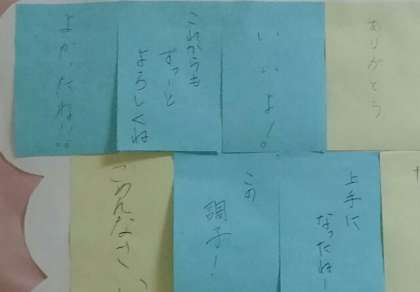 ありがとう
いいよ!
これからも
ずっーと
よろしくね
よかったね!!
上手に
なったねー
この
調子!
ごめんなさい